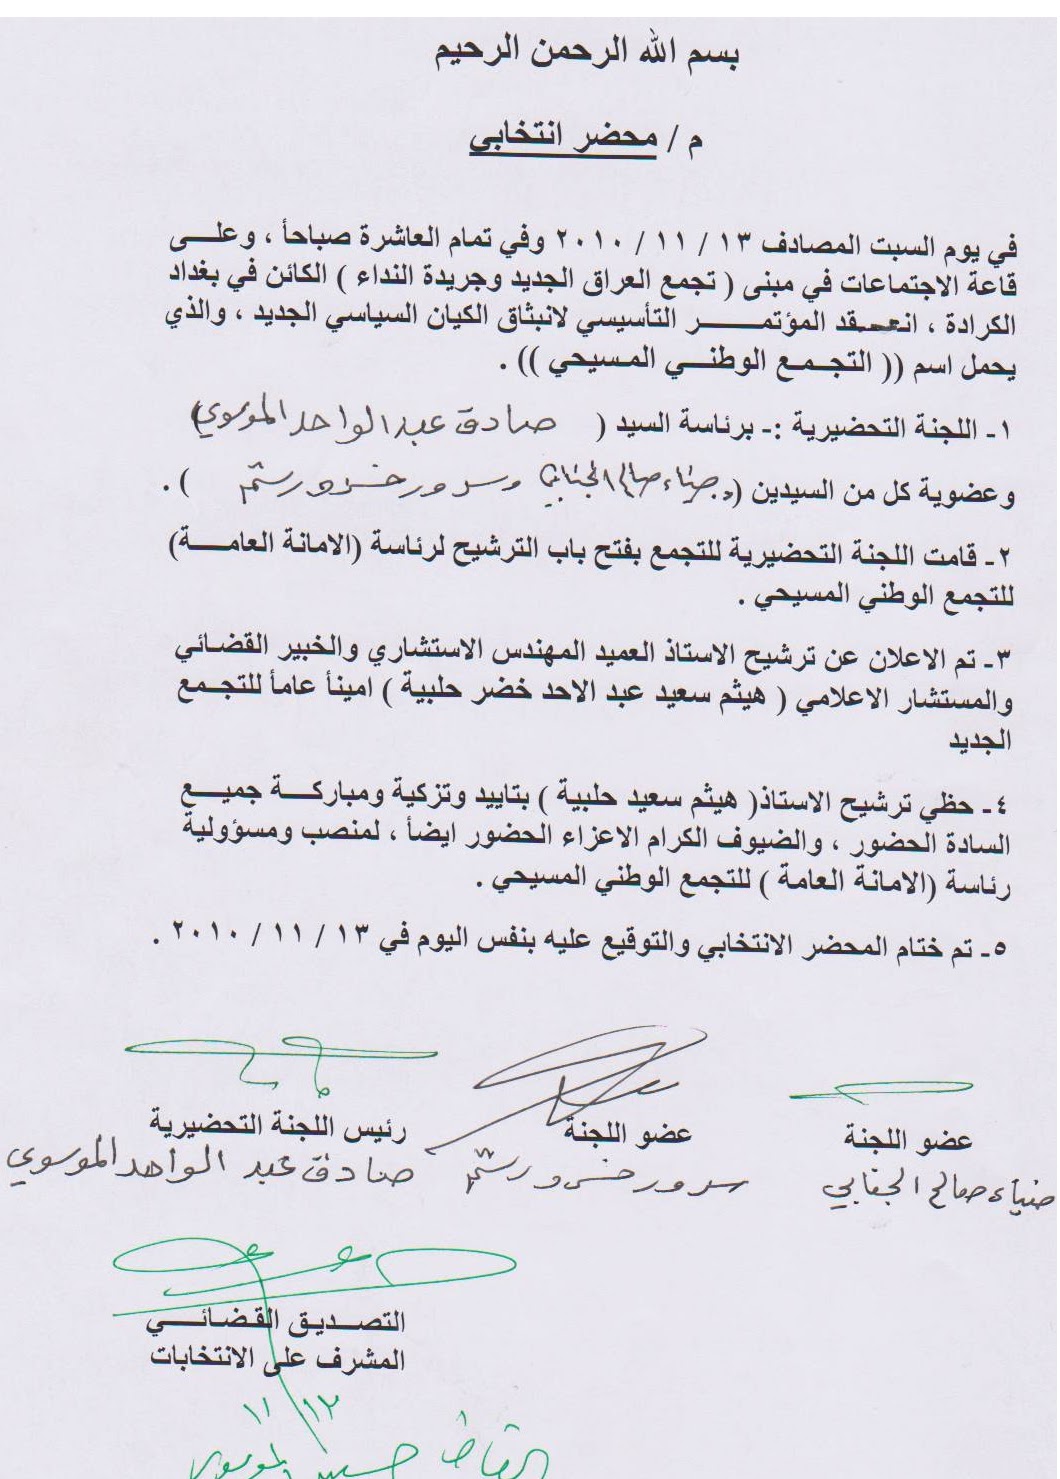 بسم الله الرحمن الرحيم
م / محضر انتخابي
في يوم السبت المصادف ١٣ / ١١ / ٢٠١٠ وفي تمام العاشرة صباحأ ، وعلى
قاعة الاجتماعات في مبنى ( تجمع العراق الجديد وجريدة النداء ) الكائن في بغداد
الكرادة ، انعقد المؤتمر التأسيسي لانبثاق الكيان السياسي الجديد ، والذي
يحمل اسم (( التجمع الوطني المسيحي )) .
١- اللجنة التحضيرية :- برئاسة السيد ( صادق عبد الواحد الموسوي )
وعضوية كل من السيدين ( ضياء صالح الجنابي وسرور خسرو رستم ) .
٢- قامت اللجنة التحضيرية للتجمع بفتح باب الترشيح لرئاسة (الامانة العامة)
للتجمع الوطني المسيحي .
٣- تم الاعلان عن ترشيح الاستاذ العميد المهندس الاستشاري والخبير القضائي
والمستشار الاعلامي ( هيثم سعيد عبد الاحد خضر حلبية ) امينأ عامأ للتجمع
الجديد
٤- حظي ترشيح الاستاذ( هيثم سعيد حلبية ) بتاييد وتزكية ومباركة جميع
السادة الحضور ، والضيوف الكرام الاعزاء الحضور ايضأ ، لمنصب ومسؤولية
رئاسة (الامانة العامة ) للتجمع الوطني المسيحي .
٥- تم ختام المحضر الانتخابي والتوقيع عليه بنفس اليوم في ١٣ / ١١ / ٢٠١٠ .
عضو اللجنة عضو اللجنة رئيس اللجنة التحضيرية
ضياء صالح الجنابي سرور خسرو رستم صادق عبد الواحد الموسوي
التصديق القضائي
المشرف على الانتخابات
١١/١٣
القاضي الموسوي